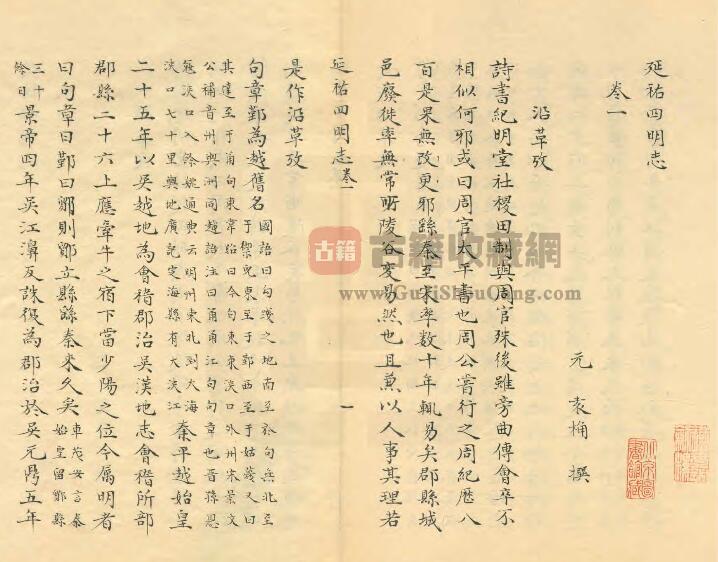 延祐四明志
卷一
元 袁桷 撰
沿革攷
詩書紀明堂社稷田制與周官殊後雖旁曲傅會卒不
相似何邪或曰周官太平書也周公嘗行之周紀歷八
百是果無改更邪繇秦至宋率數十年輒易矣郡縣城
邑廢徙率無常所陵谷変易然也且兼以人事其理若
延祐四明志 卷一
一
是作沿革攷
句章鄞為越舊名 國語曰句淺之地南至於句無北至
于禦兒東至于鄞西至于姑蔑又曰
其達至于甬句東韋昭曰今句東東浹口外州宋景文
公補音州與洲同越語注曰甬甬江句句章也晉孫恩
浹口入餘姚通典云明州東北到大海
浹口七十里輿地廣記定海縣有大浹江 秦平越始皇
二十五年以吳越地為會稽郡治吳漢地志會稽所部
郡縣二十六上應牽牛之宿下當少陽之位今屬明者
曰句章曰鄞曰鄮則鄮立縣繇秦來久矣 車茂安言秦
始皇留鄮縣
三十
餘日 景帝四年吳江濞反誅復為郡治於吳元鼎五年
古籍
古籍收藏網
www.GujiShouCang.com